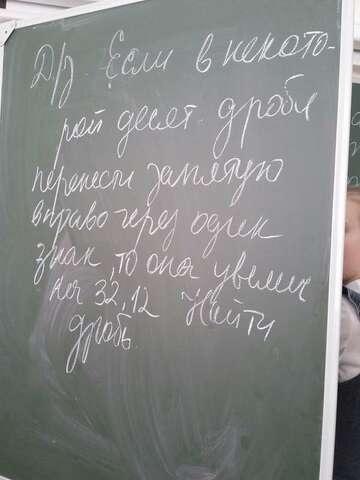 Д/з. Если в некото-
рой десят. дроби
перенести запятую
вправо через один
знак, то она увелич
на 32,12 Найти
дробь.